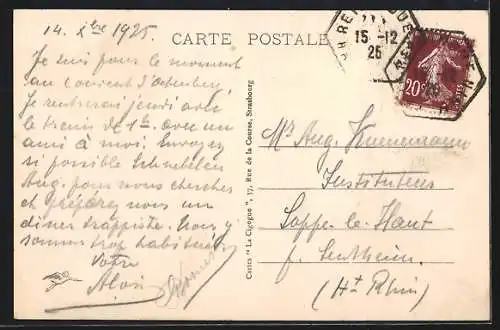 14. Xbre 1925.
CARTE POSTALE
15-12
25
20c
Je suis pour le moment
au couvent d'Oelenberg.
Je rentrerai jeudi avec
le train de 1h. avec un
ami à moi. Envoyez
si possible Schnebelen
Aug. pour nous chercher
et préparez nous un
dîner trappiste. Nous y
sommes trop habitués
Votre
Aloïs
Cartes "La Cigogne", 17, Rue de la Course, Strasbourg
Mr Aug.
Instituteur
Soppe-le-Haut
p. Sentheim.
(Ht Rhin)